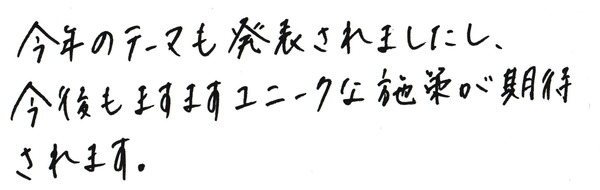 今年のテーマも発表されましたし、
今後もますますユニークな施策が期待
されます。